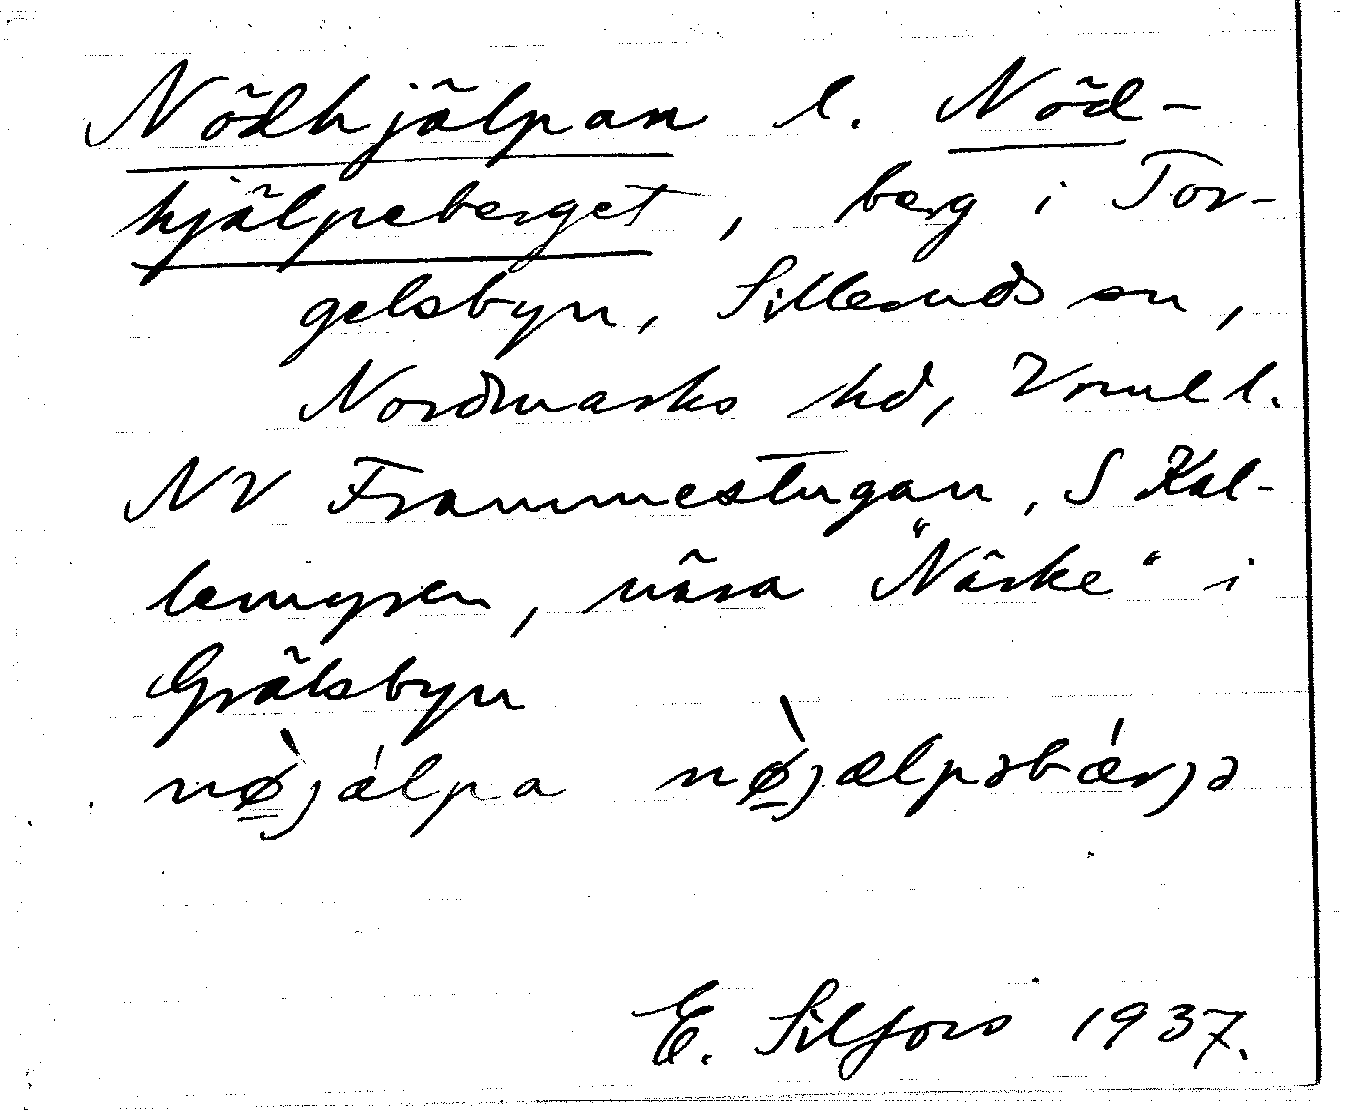 Nödhjälpan l. Nöd-
hjälpeberget, berg i Tor-
gelsbyn, Silleruds sn,
Nordmarks hd, Vrml l.
NV Frammestugan, S Kal-
lemyren, nära "Närke" i
Grälsbyn
nø̀jálpa nø̀jælpəbǽrjə
E. Silfors 1937.